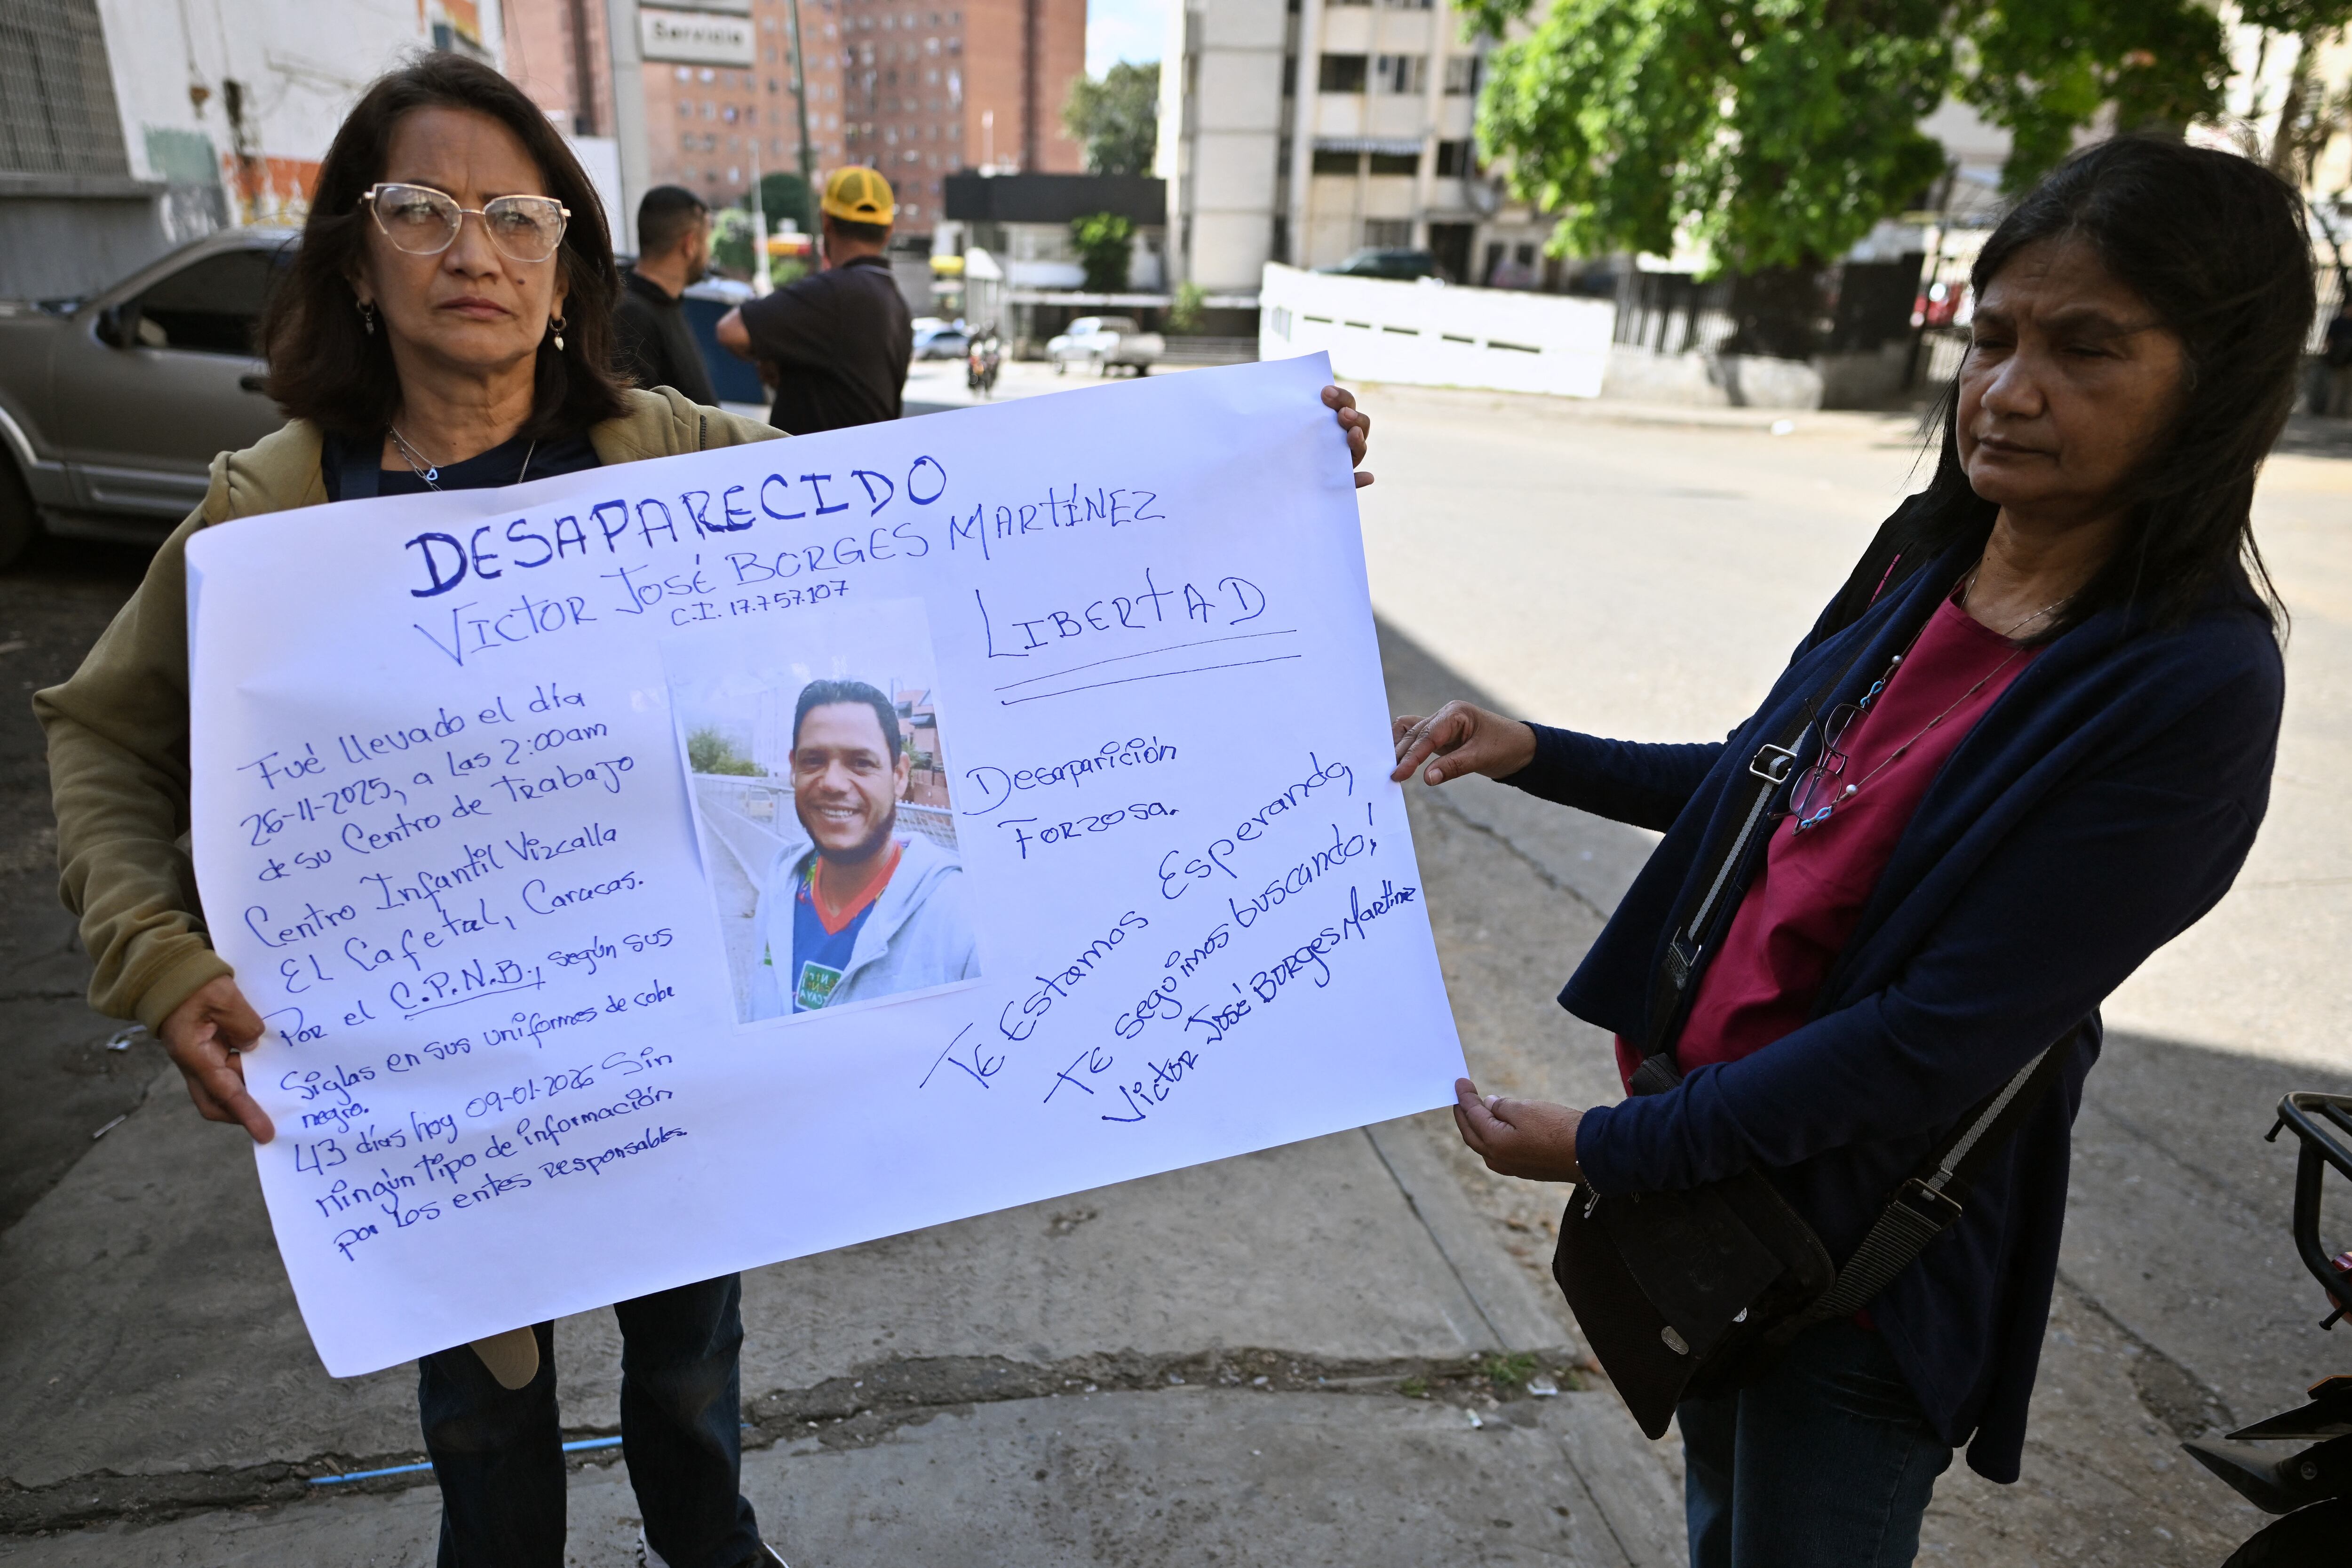 Servicio
DESAPARECIDO
VICTOR JOSÉ BORGES MARTÍNEZ
C.I. 17.757.107
LIBERTAD
Fué llevado el día
26-11-2025, a las 2:00am
de su Centro de Trabajo
Centro Infantil Vizcalla
El Cafetal, Caracas.
Por el C.P.N.B., según sus
Siglas en sus uniformes de cobr
negro.
43 días hoy 09-01-2026 Sin
ningún tipo de información
por los entes responsables.
Desaparición
Forzosa.
Te Estamos Esperando,
te seguimos buscando!
Victor José Borges Martínez